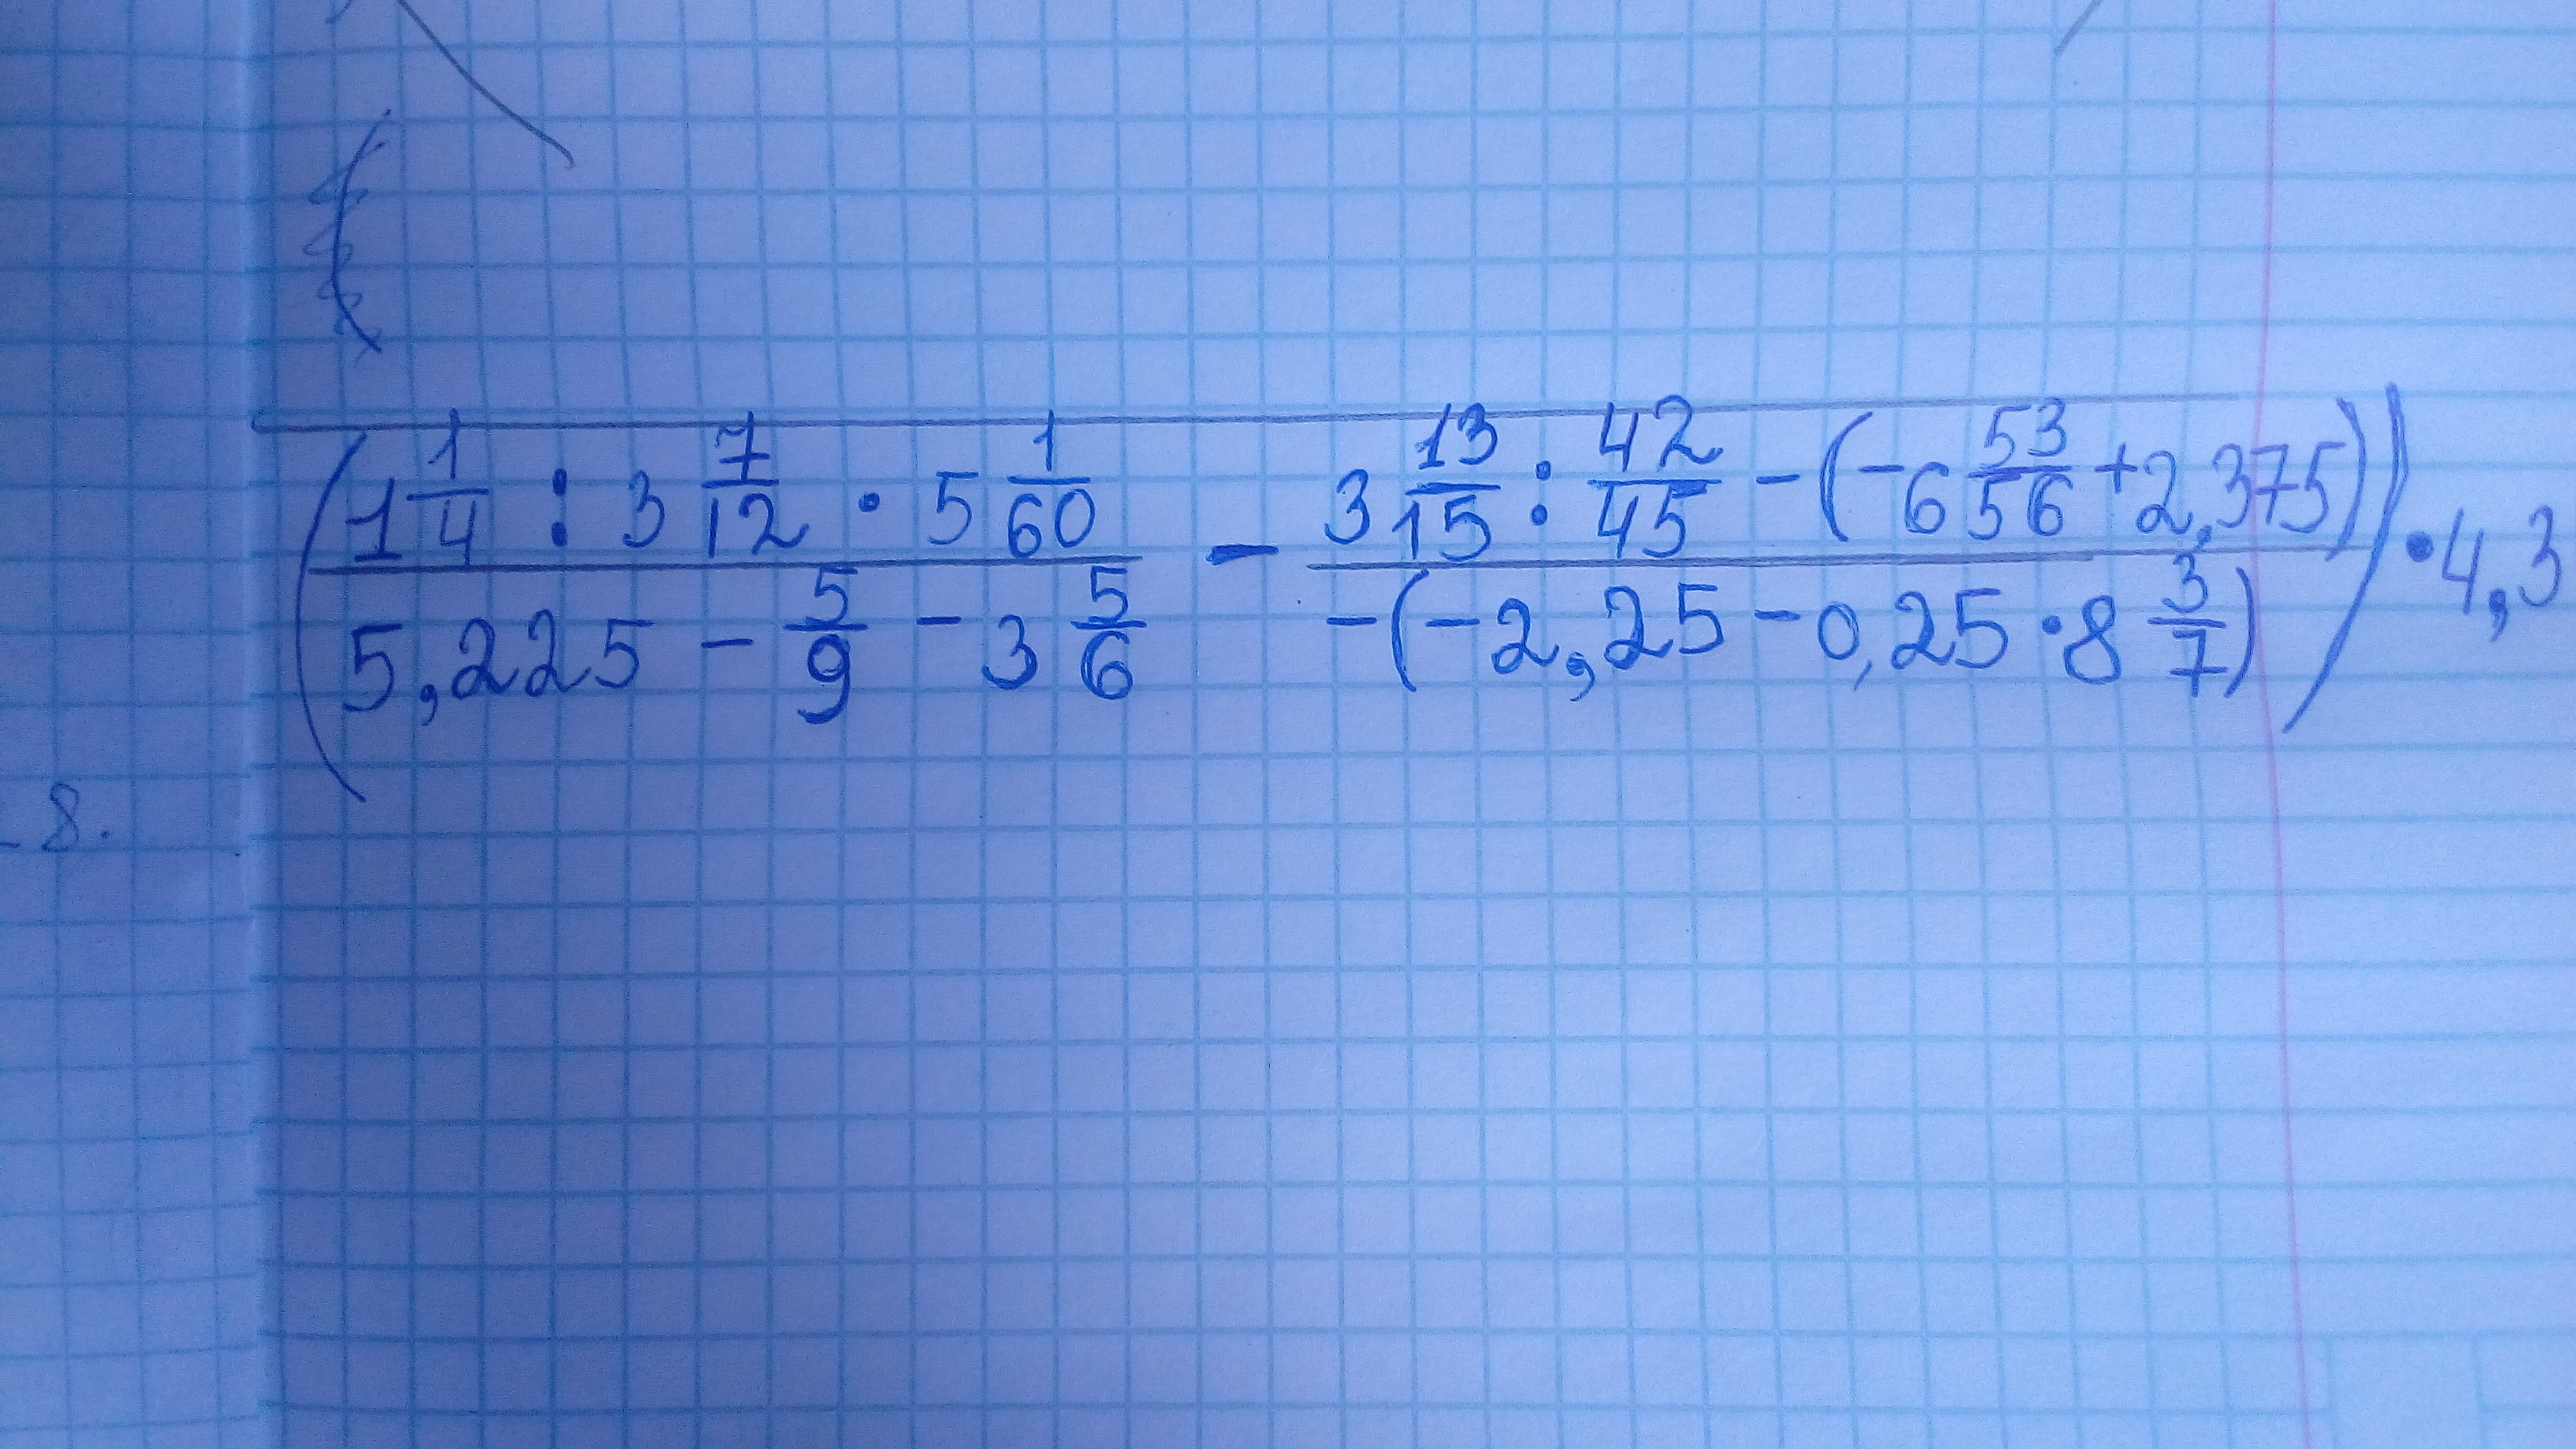 (1 1/4 : 3 7/12 · 5 1/60 / 5,225 - 5/9 - 3 5/6 - 3 13/15 : 42/45 - (-6 53/56 + 2,375) / -(-2,25 - 0,25 · 8 3/7)) · 4,3
- 8.